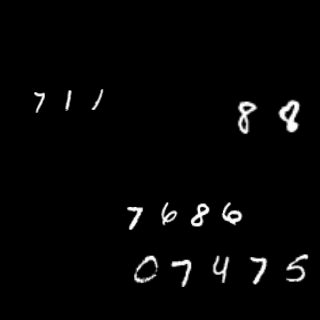 711
88
7686
07475